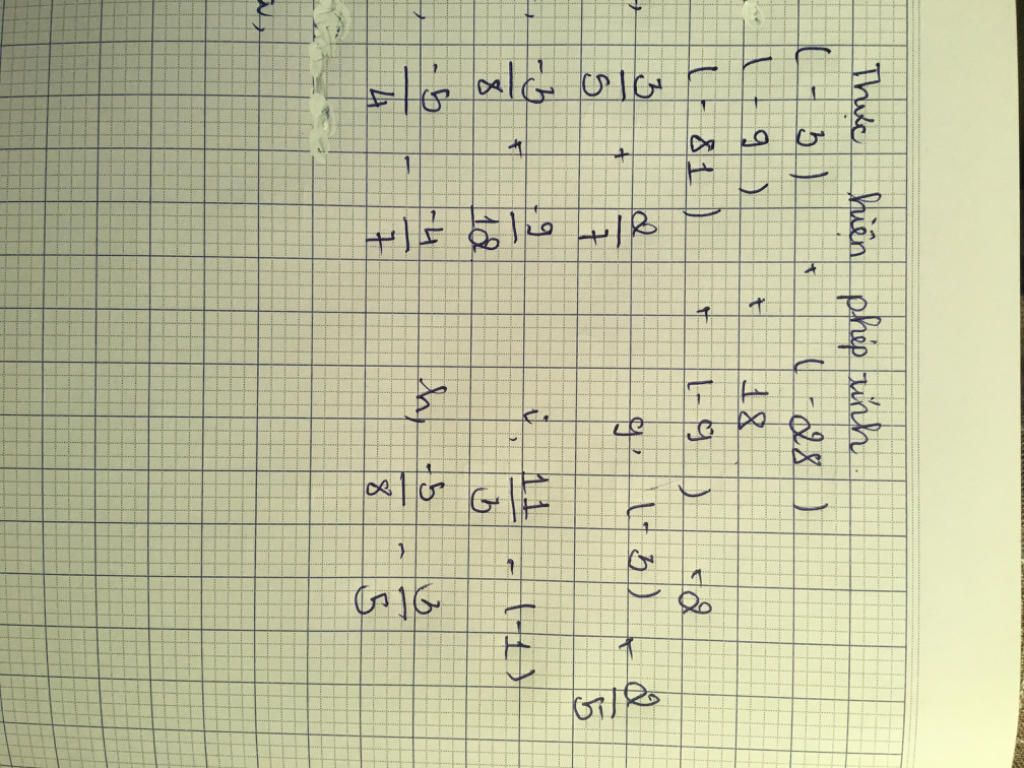 Thực hiện phép tính.
(-3) + (-28)
(-9) + 18
(-81) + (-9) + 2
3/5 + 2/7 g, (-3) + 2/5
-3/8 + -9/12 i, 11/3 - (-1)
-5/4 - -4/7 h, -5/8 - 3/5